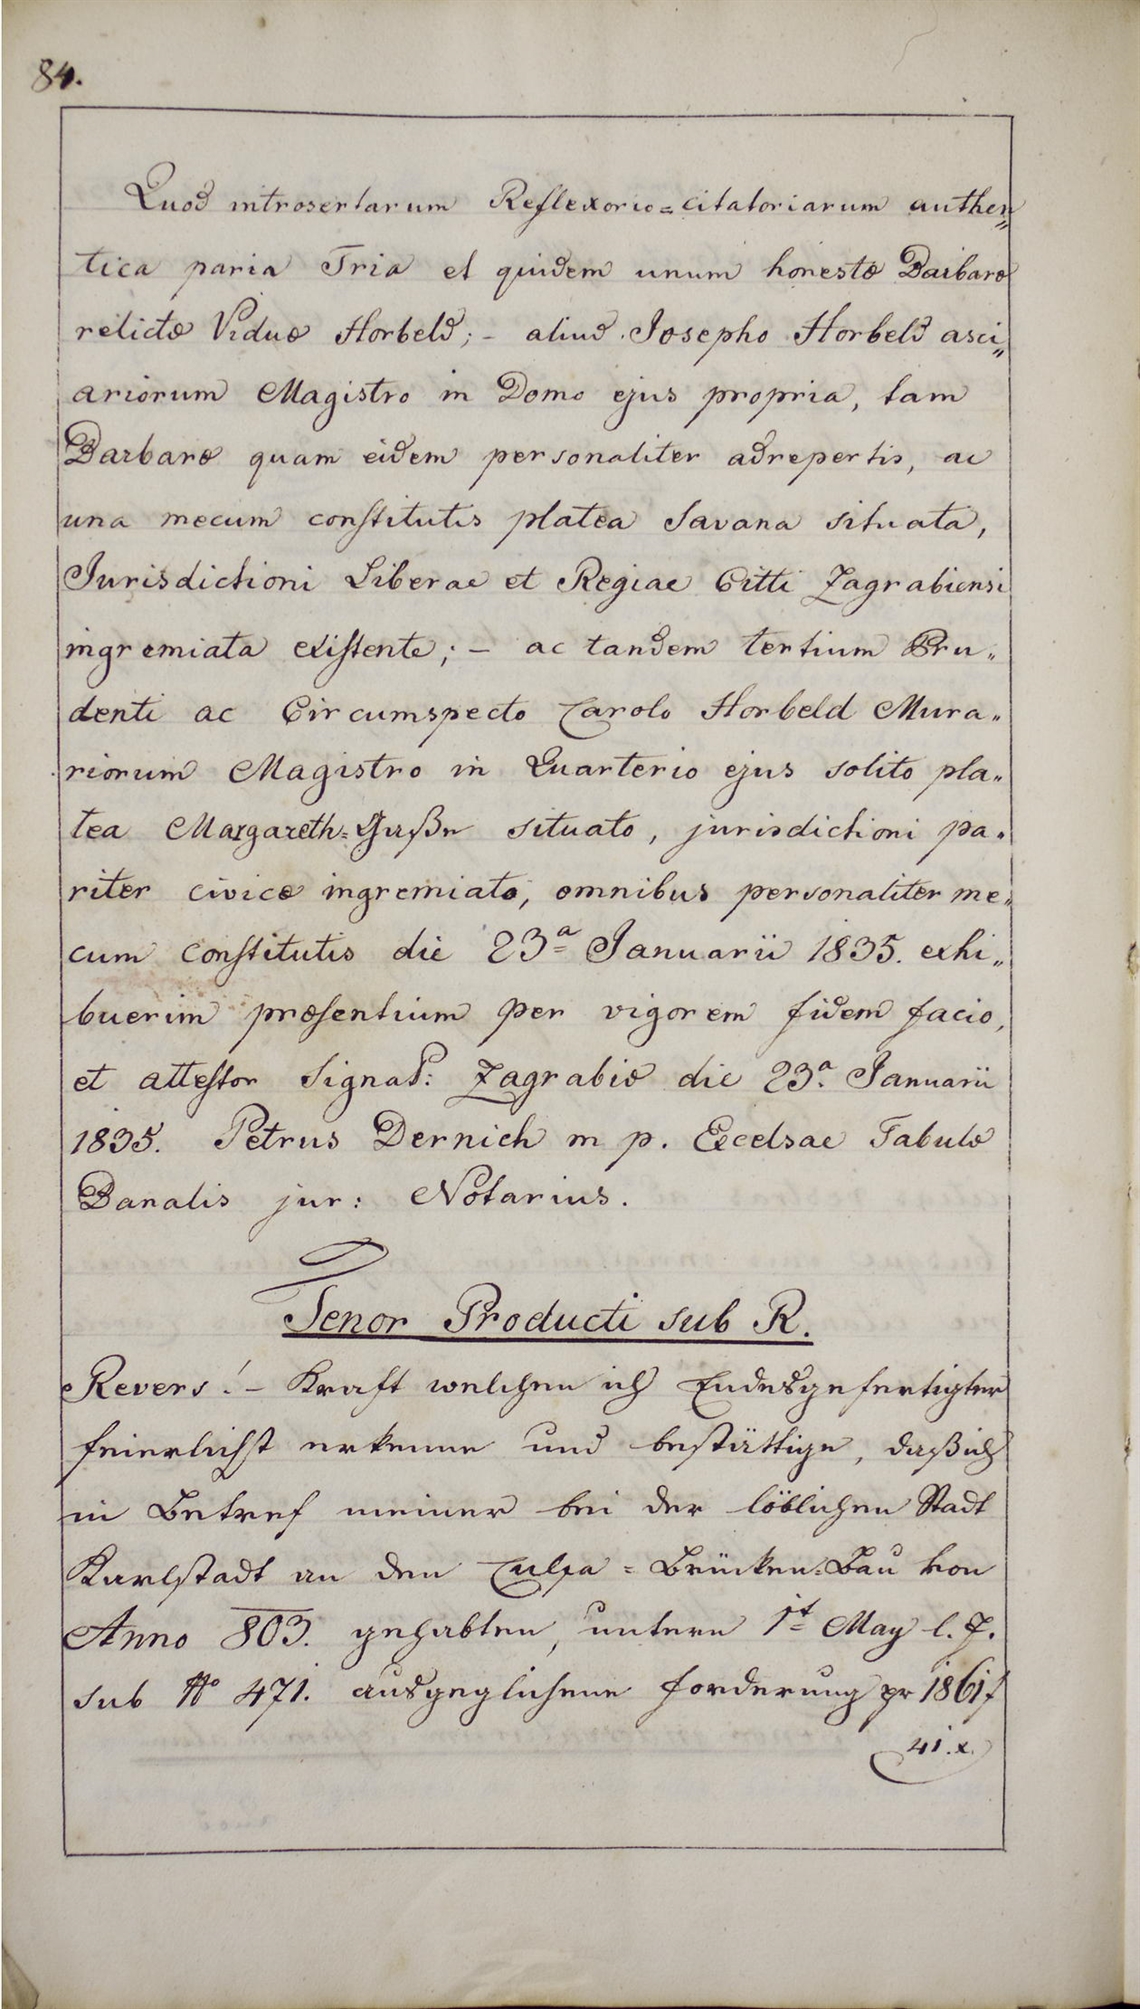 84.
Quod introsertarum Reflexorio=citatoriarum authen„
tica paria Tria et quidem unum honestæ Barbaræ
relictæ Viduæ Horbeld; – aliud Josepho Horbeld asci„
ariorum Magistro in Domo ejus propria, tam
Barbaræ quam eidem personaliter adrepertis, ac
una mecum constitutis platea Savana situata,
Jurisdictioni Liberae et Regiae Citti Zagrabiensi
ingremiata existente; – ac tandem tertium Pru„
denti ac Circumspecto Carolo Horbeld Mura„
riorum Magistro in Quarterio ejus solito pla„
tea Margareth=Gaße situato, jurisdictioni pa„
riter civicæ ingremiato, omnibus personaliter me„
cum constitutis die 23ª Januarii 1835. exhi„
buerim præsentium per vigorem fidem facio,
et attestor Signat: Zagrabiæ die 23ª. Januarii
1835. Petrus Dernich m p. Excelsae Tabulæ
Banalis jur: Notarius.
Tenor Producti sub R.
Revers! – Kraft welchen ich Endesgefertigter
feierlichst erkenne und bestättige, daß ich
in Betref meiner bei der löblichen Stadt
Karlstadt an den Culpa=Brücken=Bau von
Anno 803. gehabten, unterm 1t May l. J.
sub No 471. ausgeglichene Forderung pr 1861 f
41. x.